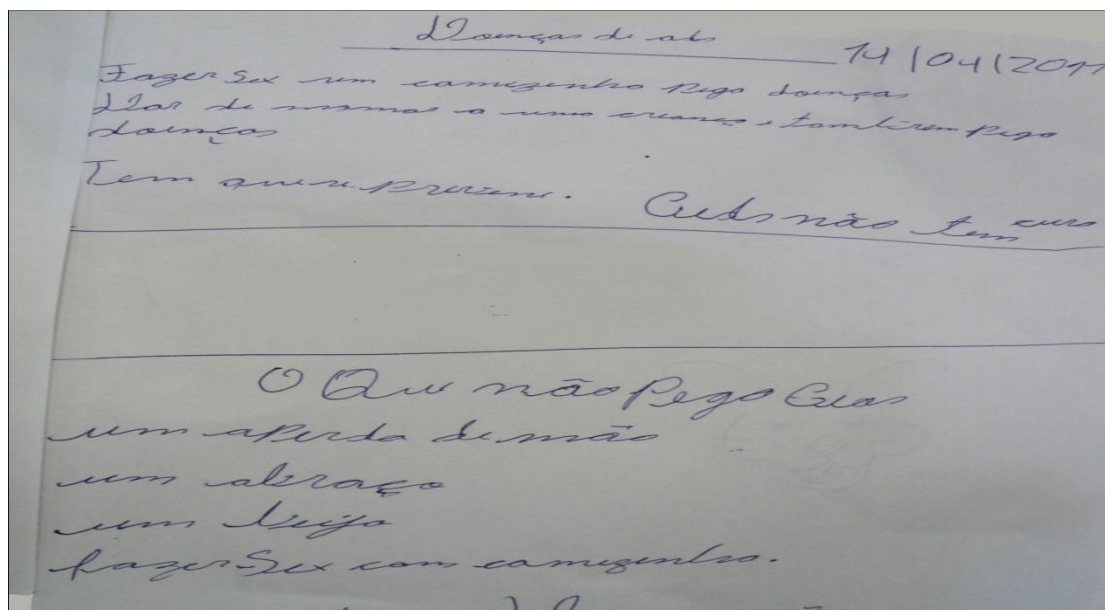 Doenças de ads 14/04/2011
Fazer Sex um camizinho Pego doenças
Dar de mamar a uma criança e tambirem Pego
doenças
Tem que se previne. Aids não tem curo
O Que não Pego Aids
um aperda de mão
um abraço
um beijo
fazer Sex com camizinho.